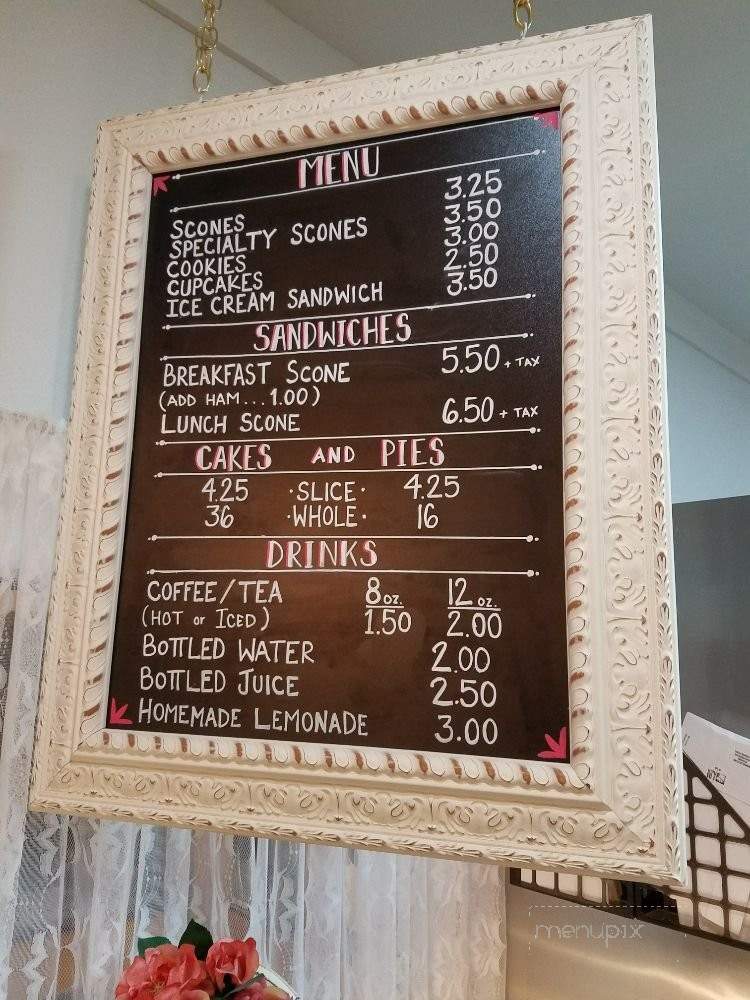 MENU
SCONES 3.25
SPECIALTY SCONES 3.50
COOKIES 3.00
CUPCAKES 2.50
ICE CREAM SANDWICH 3.50
SANDWICHES
BREAKFAST SCONE 5.50 + TAX
(ADD HAM...1.00)
LUNCH SCONE 6.50 + TAX
CAKES AND PIES
4.25 ·SLICE· 4.25
36 ·WHOLE· 16
DRINKS
COFFEE/TEA 8 oz. 12 oz.
(HOT or ICED) 1.50 2.00
BOTTLED WATER 2.00
BOTTLED JUICE 2.50
HOMEMADE LEMONADE 3.00
menupix